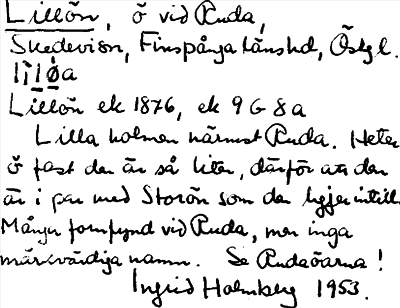 Lillön, ö vid Ruda,
Skedevi sn, Finspånga länshd, Östgl.
Lillön ek 1876, ek 9 G 8 a
Lilla holmen närmst Ruda. Heter
ö fast den är så liten, därför att den
är i par med Storön som den ligger intill.
Många fornfynd vid Ruda, men inga
märkvärdiga namn. Se Rudaöarna!
Ingrid Holmberg 1953.